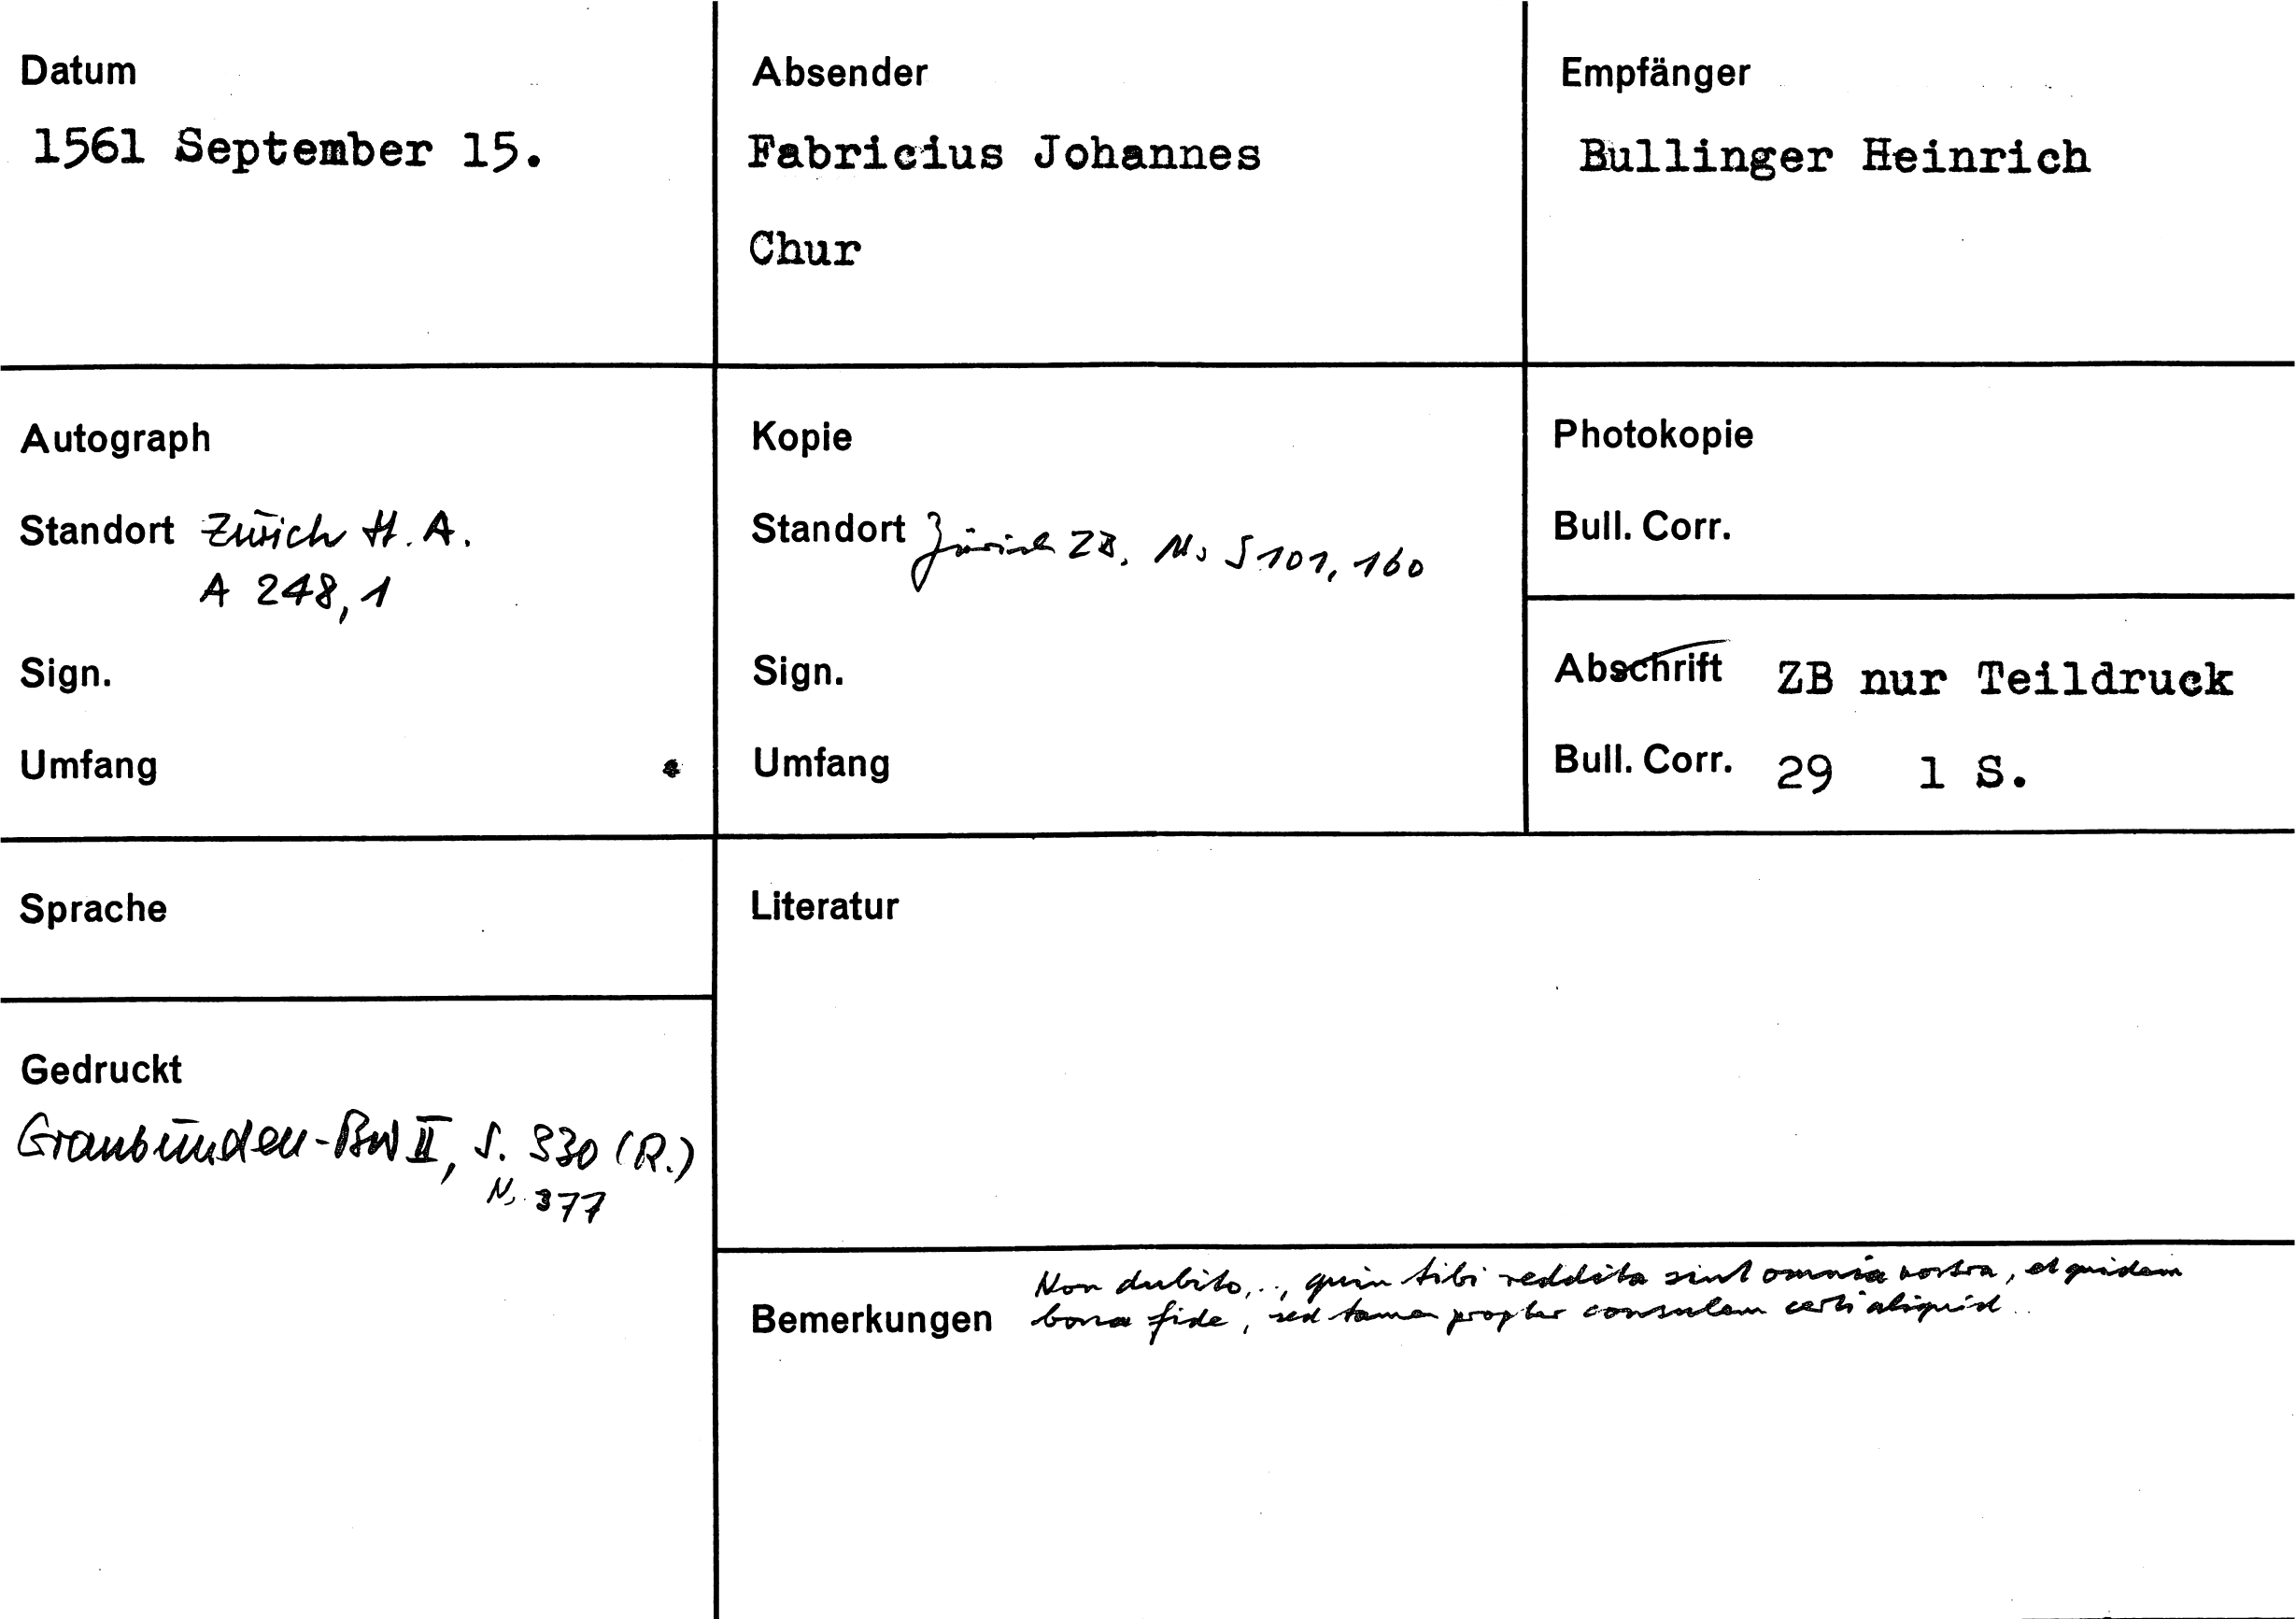 Datum
1561 September 15.
Absender
Fabricius Johannes
Chur
Empfänger
Bullinger Heinrich
Autograph
Standort Zürich H. A.
A 248, 1
Sign.
Umfang
Kopie
Standort Zürich ZB. Ms S 101, 160
Sign.
Umfang
Photokopie
Bull. Corr.
Abschrift ZB nur Teildruck
Bull. Corr. 29 1 S.
Sprache
Gedruckt
Graubünden-BW II, S. 330 (R.)
N. 377
Literatur
Bemerkungen
Non dubito,.., quin tibi reddita sint omnia nostra, et quidem
bona fide, sed tamen propter consulem certi aliquid..